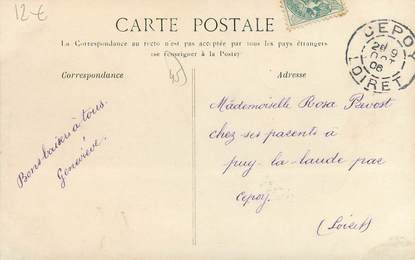 12 €
CARTE POSTALE
La Correspondance au recto n'est pas acceptée par tous les pays étrangers
(se renseigner à la Poste)
Correspondance
Adresse
45
CEPOY
29
OCT
06
LOIRET
Bons baisers à tous.
Geneviève.
Mademoiselle Rosa Prevost
chez ses parents à
puy-la-laude par
Cepoy.
(Loiret)